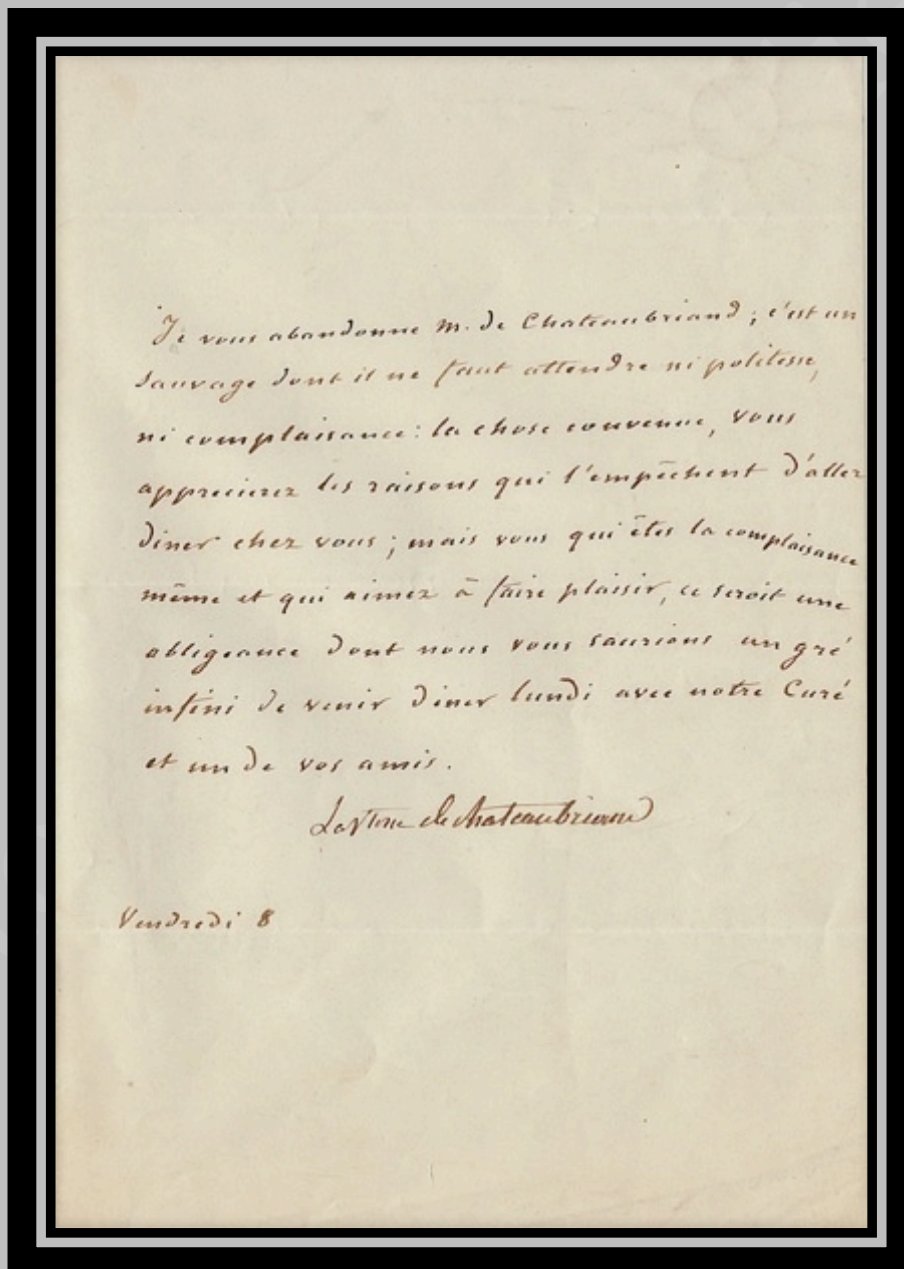 Je vous abandonne M. de Chateaubriand ; c'est un
sauvage dont il ne faut attendre ni politesse,
ni complaisance : la chose convenue, vous
apprecierez les raisons qui l'empêchent d'aller
diner chez vous ; mais vous qui êtes la complaisance
même et qui aimez à faire plaisir, ce seroit une
obligeance dont nous vous saurions un gré
infini de venir diner lundi avec notre Curé
et un de vos amis.
La Vtesse de Chateaubriand
Vendredi 8